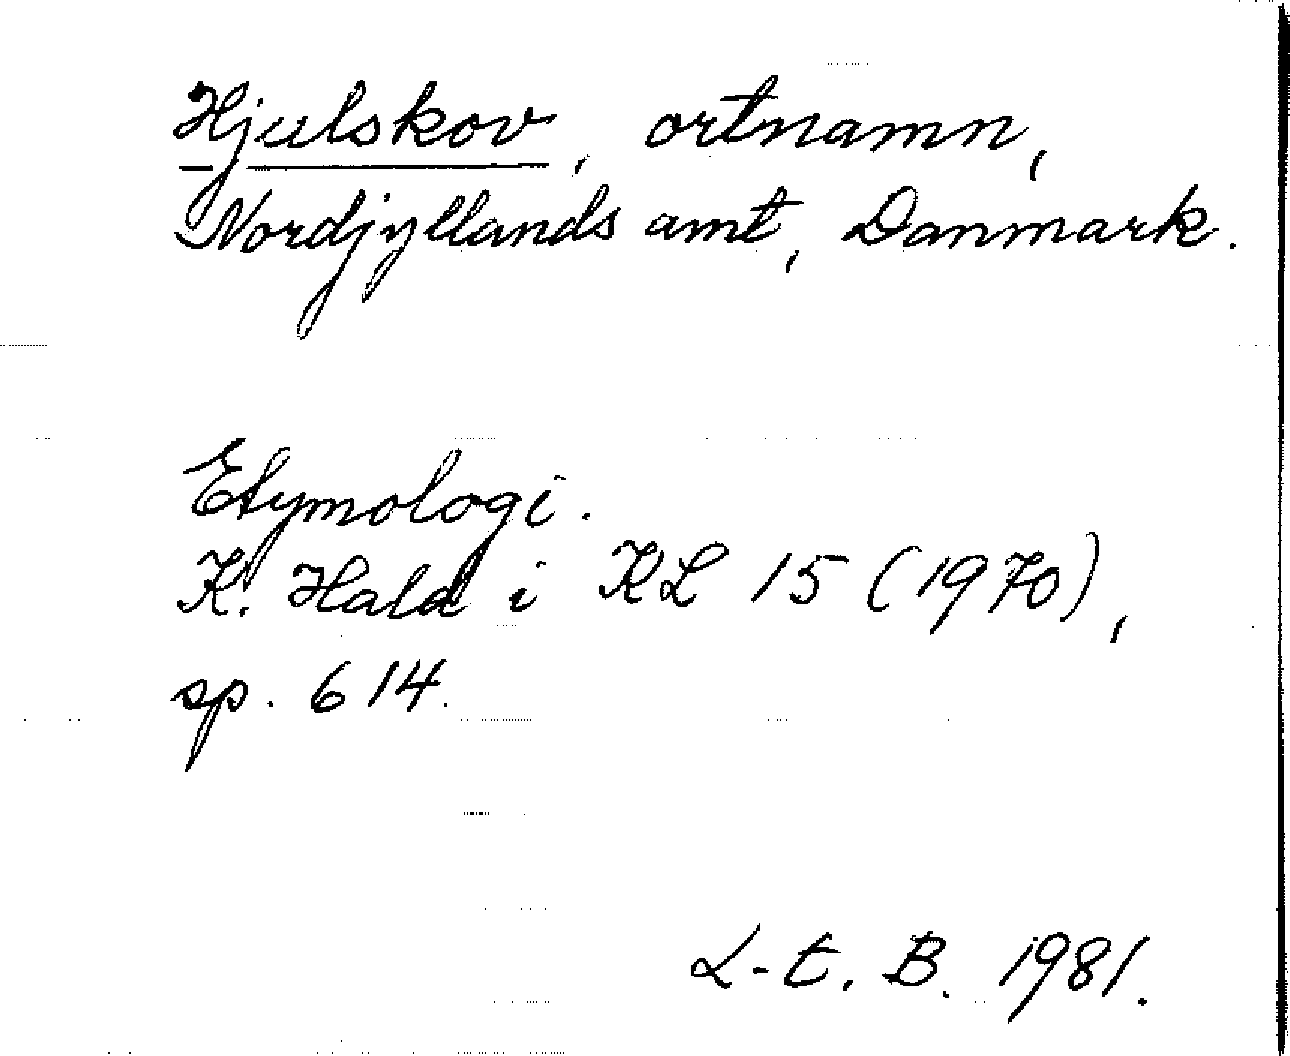 Hjulskov, ortnamn,
Nordjyllands amt, Danmark.
Etymologi.
K. Hald i KL 15 (1970),
sp. 614.
L-t. B. 1981.